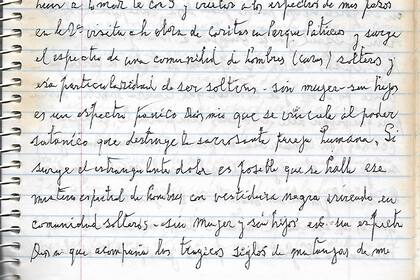 a tomar y a los espectros de mis pasos
en la 2ª visita a la obra de caritas en Parque Patricios y surge
el espectro de una comunidad de hombres (curas) solteros y
esa particularidad de ser solteros - sin mujer - sin hijos
es un espectro Dios mio que se vincula al poder
satanico que destruye la sacrosanta pareja humana. Si
surge el estrangulante dolor es posible que se halle ese
espectral de hombres con vestidura negra viviendo en
comunidad solteros - sin mujer y sin hijos es un espectro
Dios mio que acompaña los tragicos siglos de matanzas de